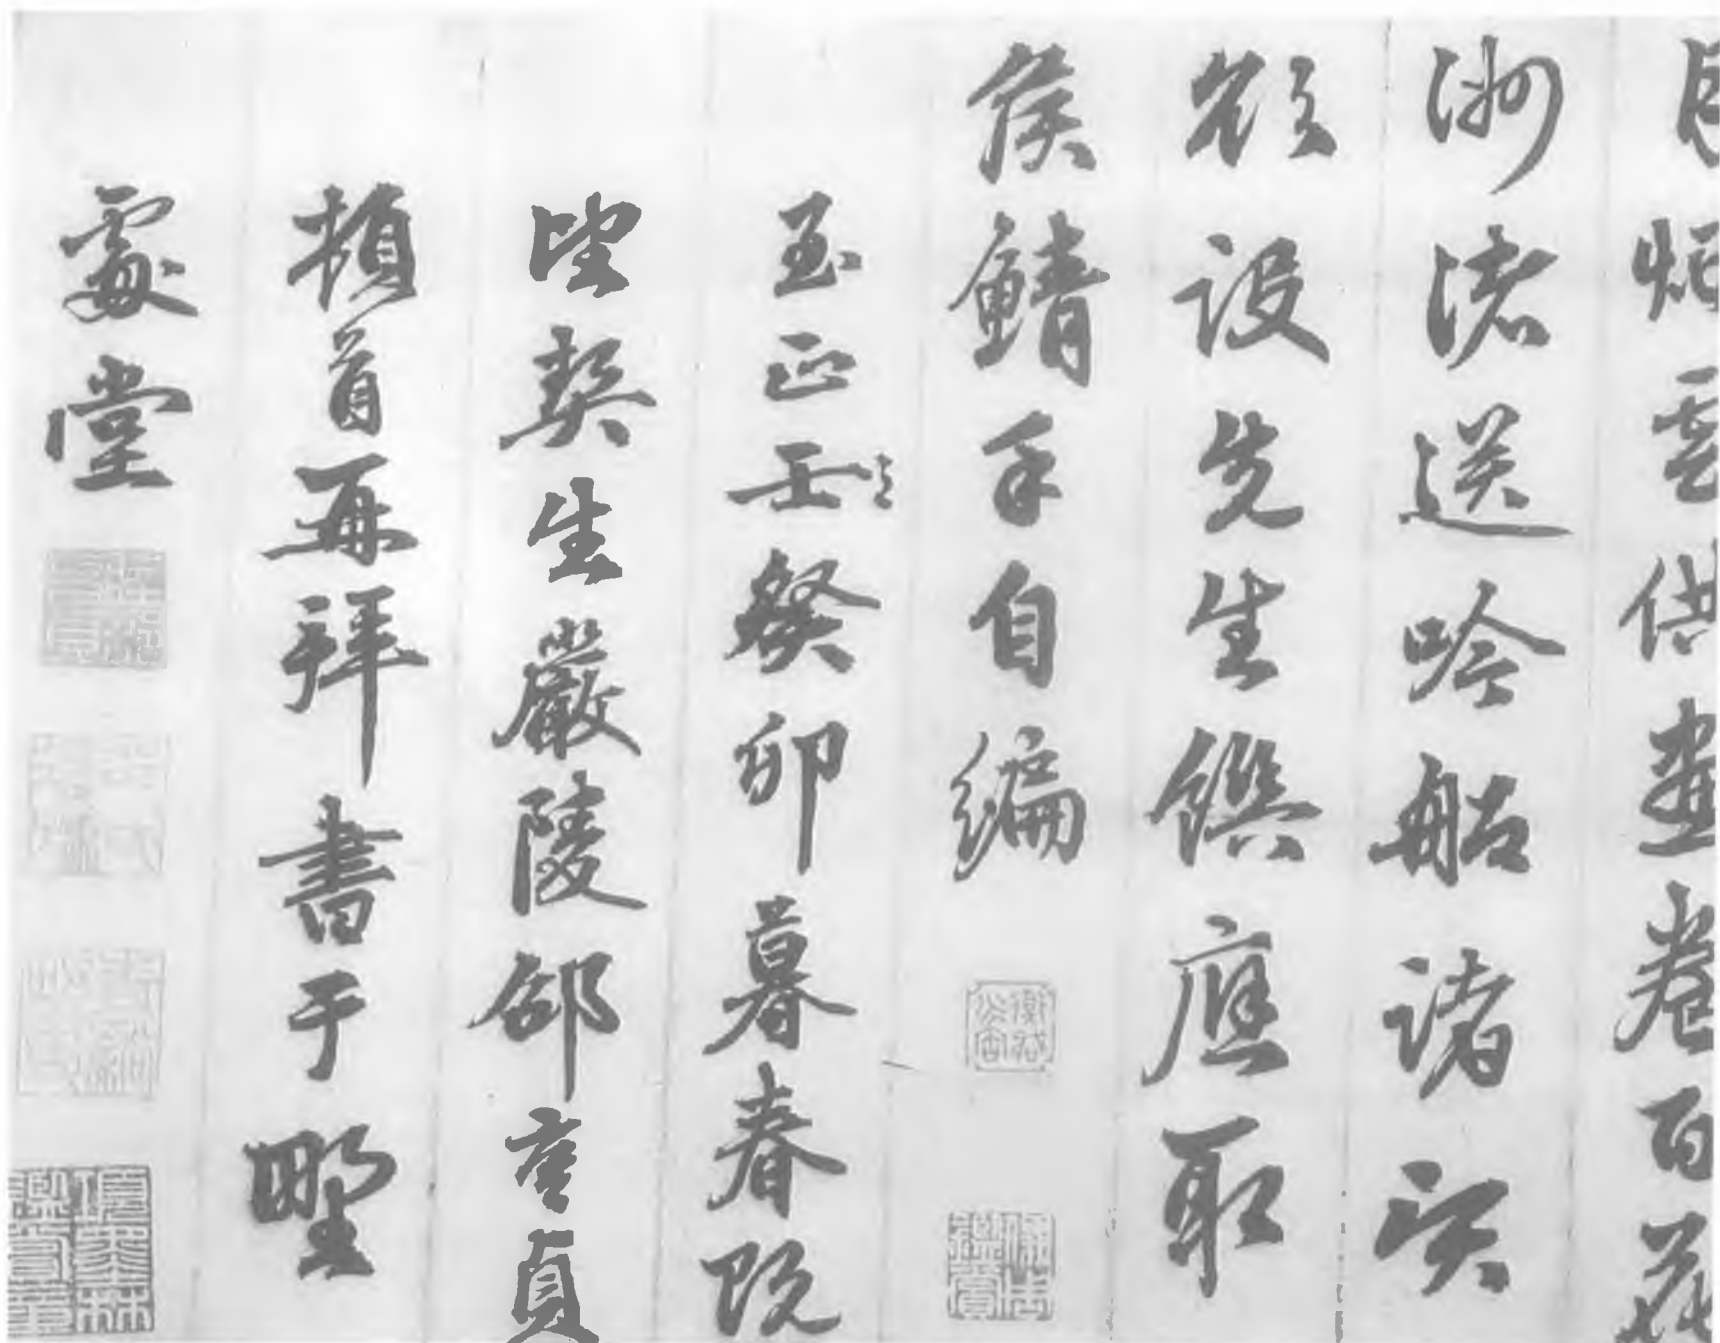 烟雲供畫卷百花
洲渚送吟船諸
欲設先生饌應取
侯鯖手自編
至正壬癸卯暮春既
望契生嚴陵邵亨貞
頓首再拜書于野
處堂